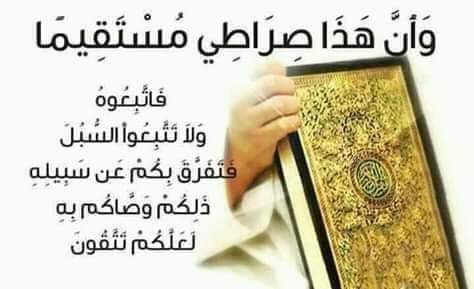 وَأَنَّ هَذَا صِرَاطِي مُسْتَقِيمًا
فَاتَّبِعُوهُ
وَلاَ تَتَّبِعُواْ السُّبُلَ
فَتَفَرَّقَ بِكُمْ عَن سَبِيلِهِ
ذَلِكُمْ وَصَّاكُم بِهِ
لَعَلَّكُمْ تَتَّقُونَ